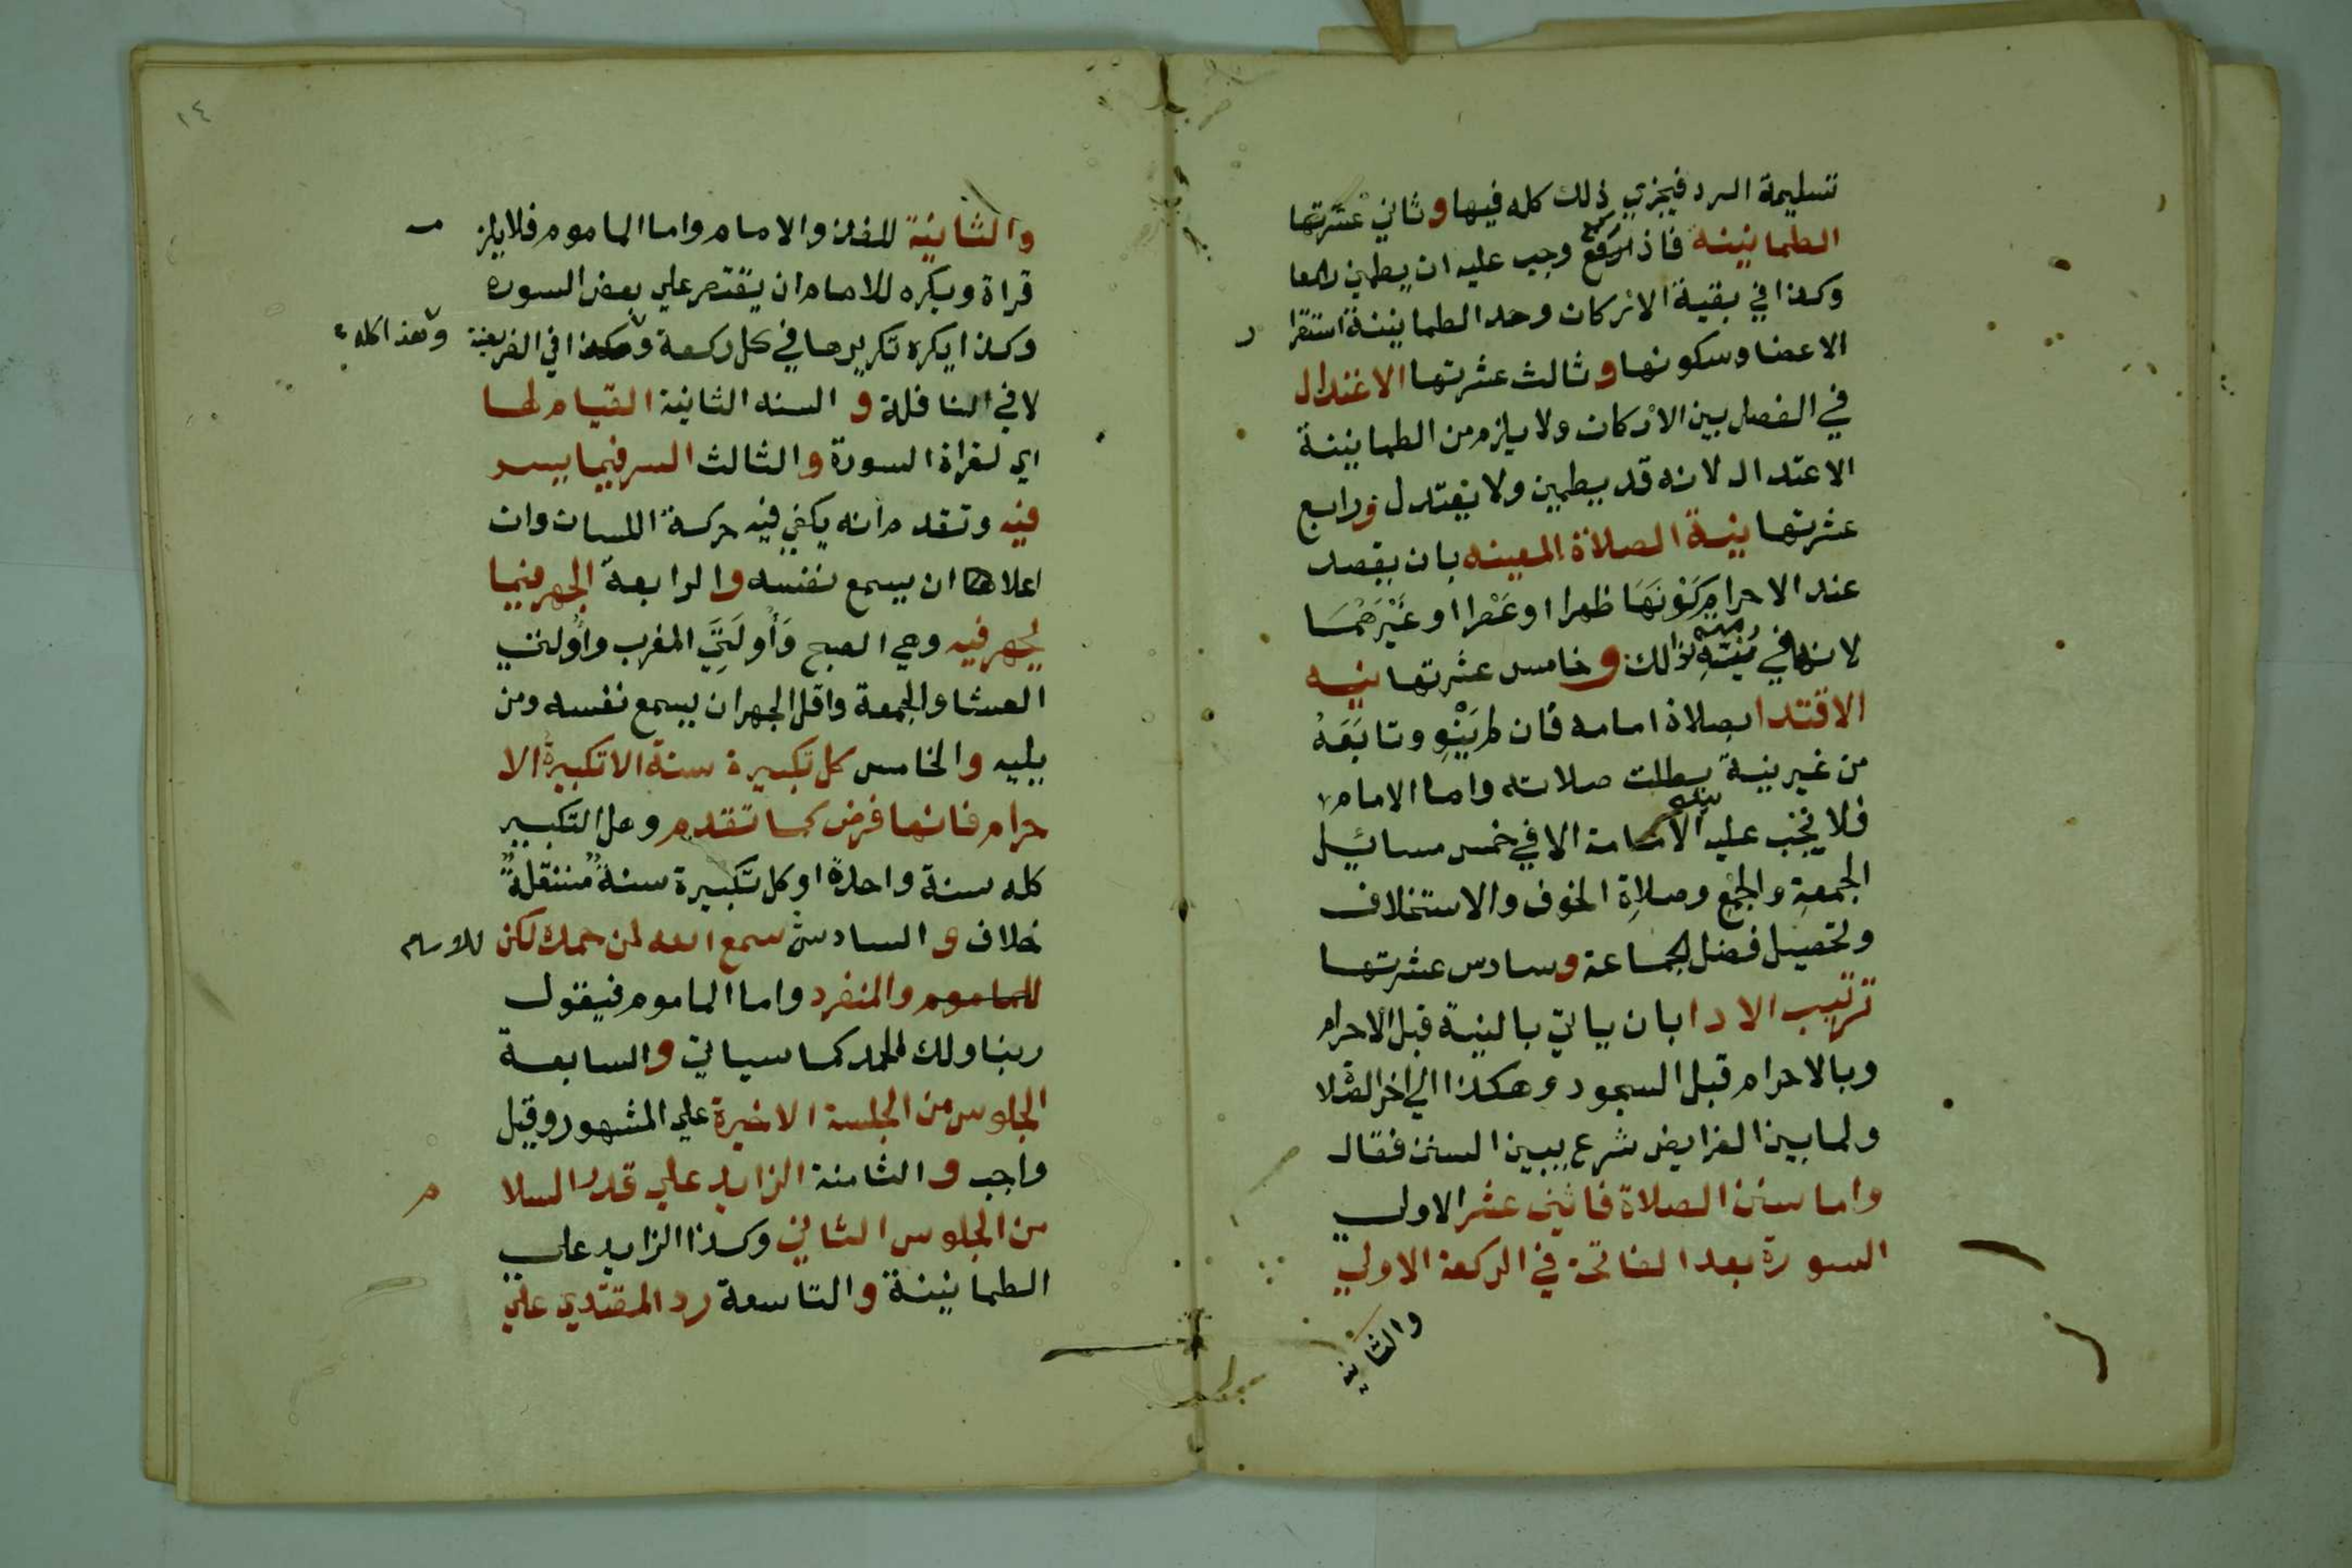 تسليمة الرد فيجزي ذلك كله فيها وثاني عشرتها
الطمانينة فاذا رفع وجب عليه ان يطمين رافعا
وكذا في بقية الاركان وحد الطمانينة استقرا ر
الاعضا وسكونها وثالث عشرتها الاعتدال
في الفصل بين الاركان ولا يلزم من الطمانينة
الاعتدال لانه قد يطمين ولا يعتدل ورابع
عشرتها نية الصلاة المعينه بان يقصد
عند الاحرام كونها ظهرا او عصرا او غيرهما
لانها في ذالك وخامس عشرتها نيه
الاقتدا بصلاة امامه فان لم ينو وتابعه
من غير نية بطلت صلاته واما الامام
فلا تجب عليه الامامة الا في خمس مسائيل
الجمعة والجمع وصلاة الخوف والاستخلاف
وتحصيل فضل الجماعة وسادس عشرتها
ترتيب الادا بان ياتي بالنية قبل الاحرام
وبالاحرام قبل السجود وهكذا الي اخر الصلا
ولما بين الفرايض شرع يبين السنن فقال
واما سنن الصلاة فاثني عشر الاولي
السورة بعد الفاتحة في الركعة الاولي
والثانية
١٤
والثانية للفذ والامام واما الماموم فلا يلز مـ
قراة ويكره للامام ان يقتصر علي بعض السوره
وكذا يكره تكريرها في كل ركعة وهكذا في الفريضة وهذا كله
لا في النافلة و السنه الثانية القيام لها
اي لقراة السورة والثالث السر فيما يسر
فيه وتقدم انه يكفي فيه حركة اللسان وان
اعلاها ان يسمع نفسه والرابعة الجهر فيما
يجهر فيه وهي الصبح وأولتي المغرب وأولتي
العشا والجمعة واقل الجهر ان يسمع نفسه ومن
يليه والخامس كل تكبيرة سنة الا تكبيرة الا
حرام فانها فرض كما تقدم وهل التكبير
كله سنة واحدة او كل تكبيرة سنة مستقلة
خلاف و السادس سمع الله لمن حمده لكن للامام
للماموم والمنفرد واما الماموم فيقول
ربنا ولك الحمد كما سياتي والسابعة
الجلوس من الجلسة الاخيرة علي المشهور وقيل
واجب و الثامنة الزايد علي قدر السلا م
من الجلوس الثاني وكذا الزايد علي
الطمانينة والتاسعة رد المقتدي علي